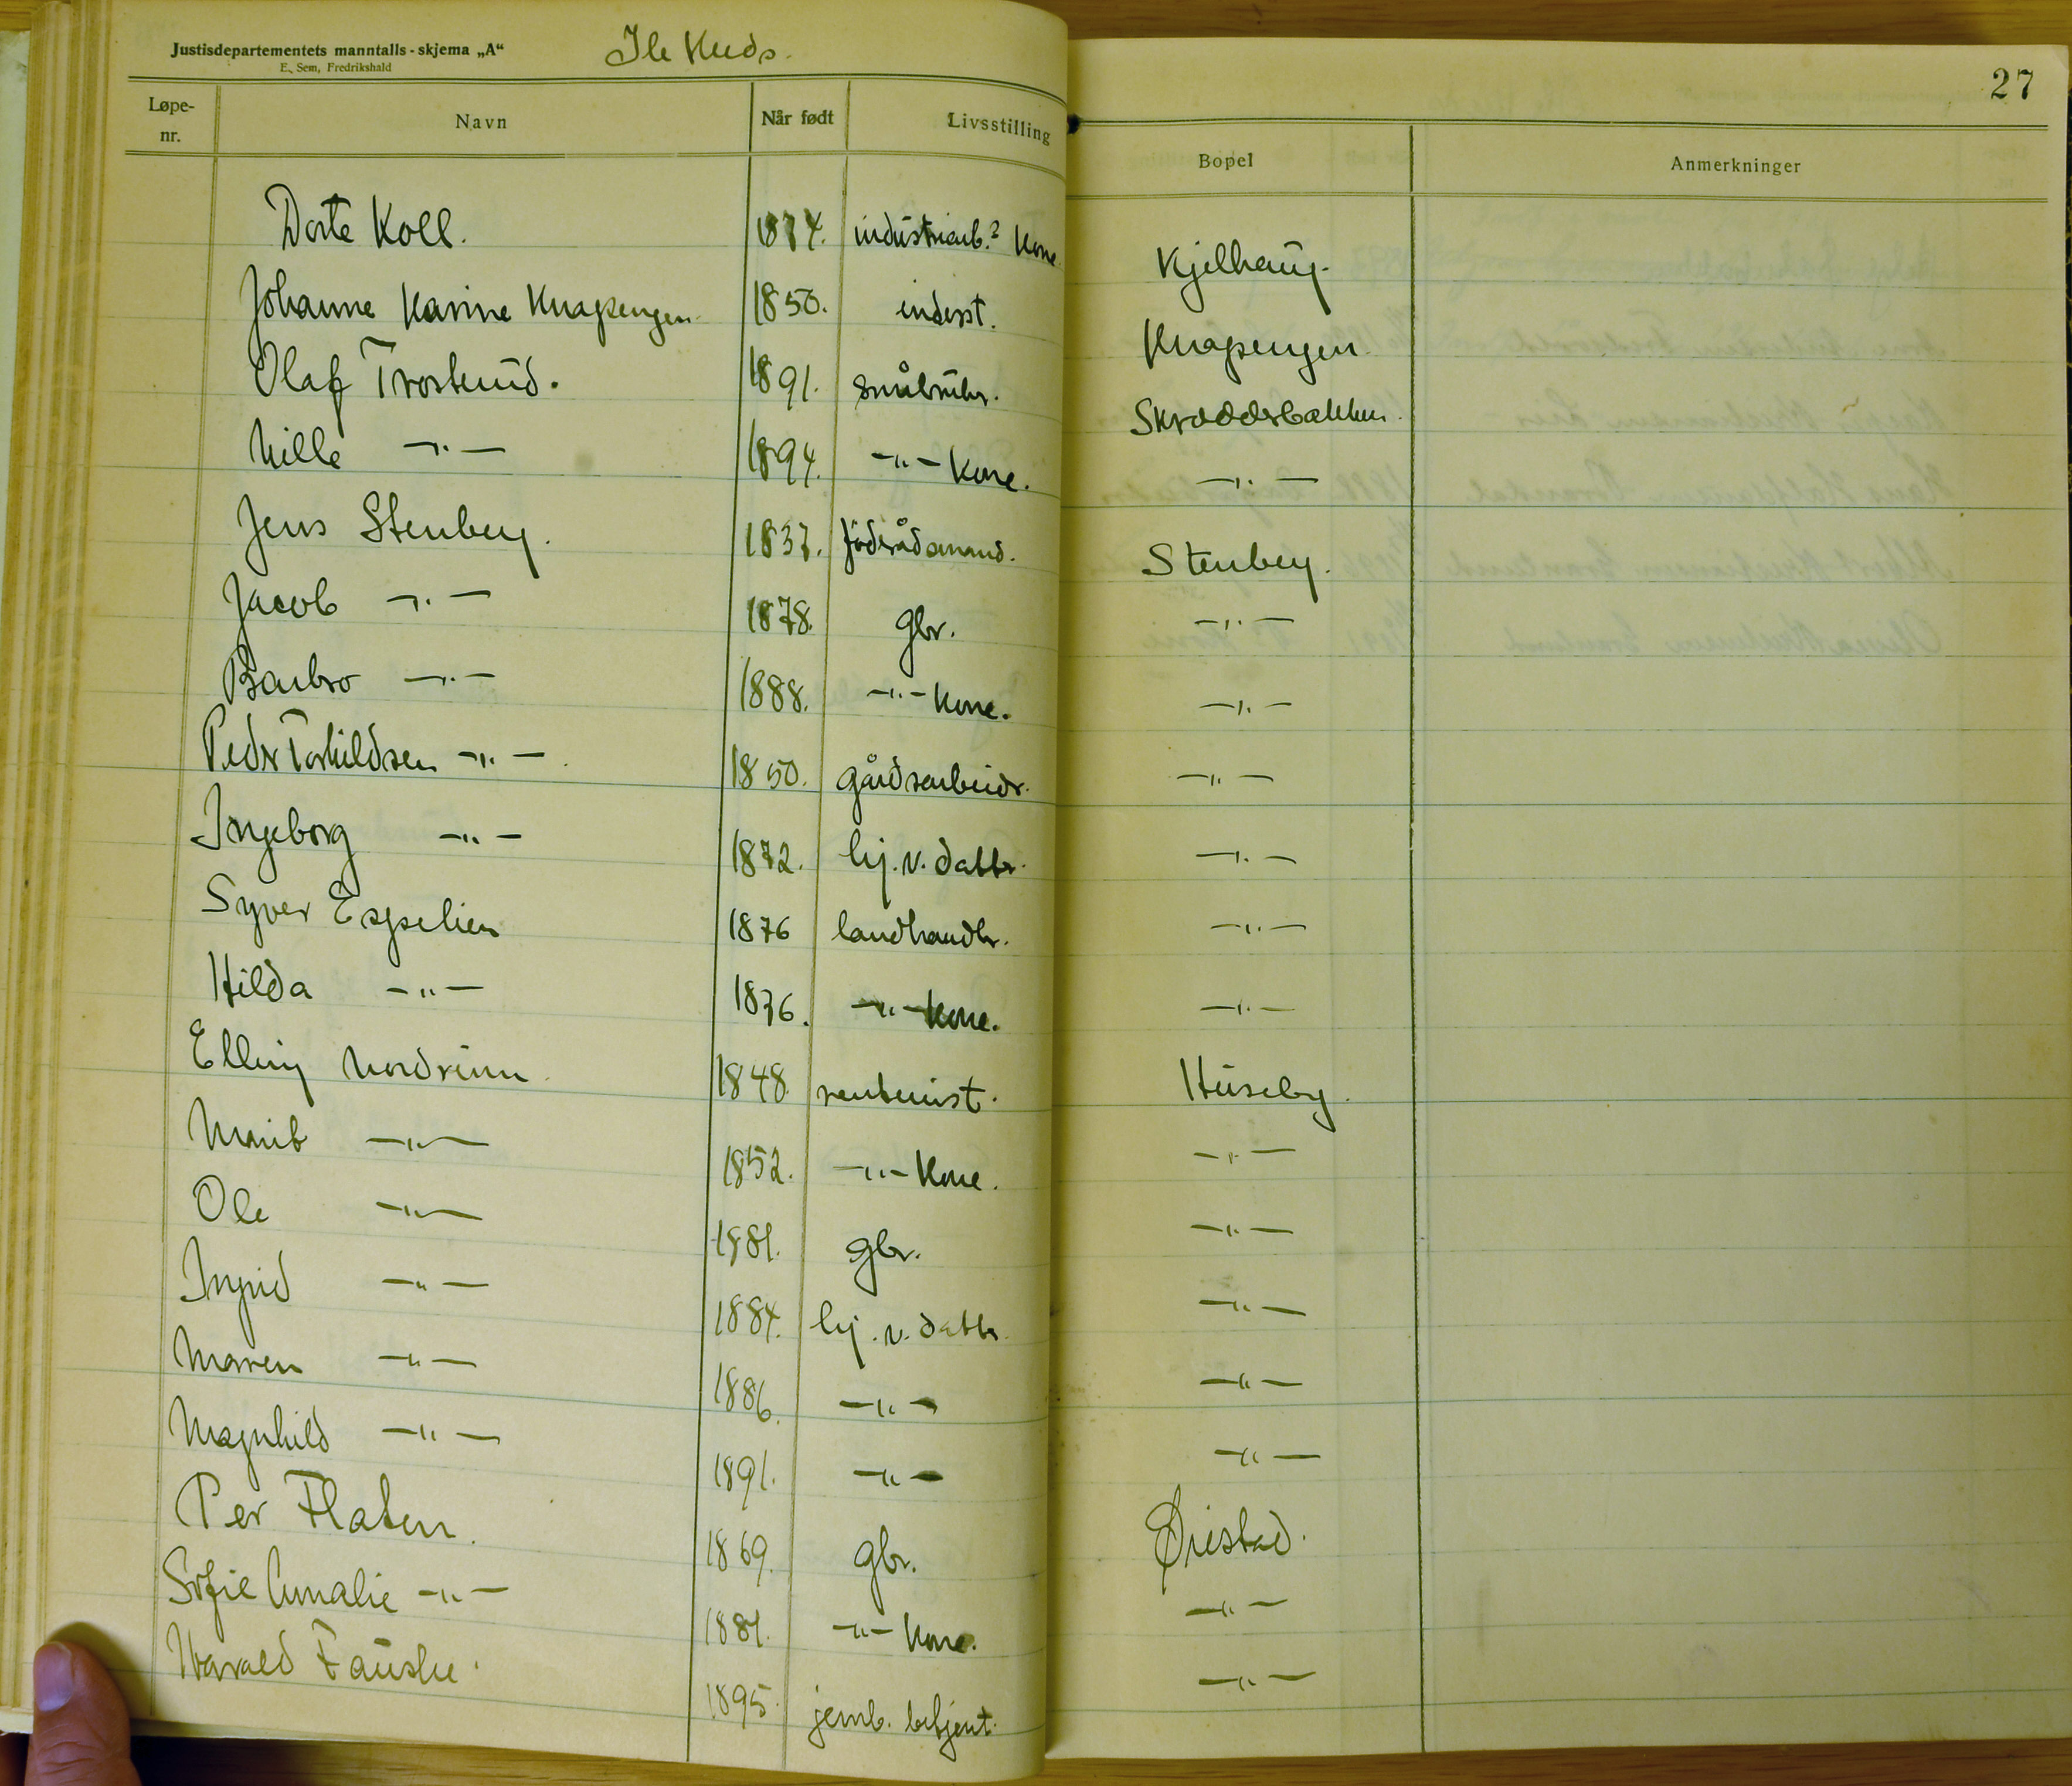 Justisdepartementets manntalls-skjema „A“
E. Sem, Fredrikshald
27
Løpe-nr. Navn Når født Livsstilling Bopel Anmerkninger
Dorte Koll. 1874. industriarb.? Kone. Kjelhaug.
Johanne Karine Knapengen 1850. inderst. Knapengen
Olaf Trosterud. 1891. småbruker. Skrædderbakken.
Nille —"— 1894. —"— Kone. —"—
Jens Stenberg. 1837. föderådsmand. Stenberg.
Jacob —"— 1878. gbr. —"—
Barbro —"— 1888. —"— Kone. —"—
Peder Torkildsen —"— 1850. gårdsarbeider. —"—
Ingeborg —"— 1872. hj. v. datter. —"—
Syver Espelien 1876 landhandler. —"—
Hilda —"— 1876. —"— Kone. —"—
Elling Nordrum 1848. rentenist. Huseby.
Marit —"— 1852. —"— Kone. —"—
Ole —"— 1881. gbr. —"—
Ingrid —"— 1884. hj. v. datter. —"—
Maren —"— 1886. —"— —"—
Magnhild —"— 1891. —"— —"—
Per Flaten. 1869. gbr. Øiestad.
Sofie Amalie —"— 1881. —"— Kone. —"—
Harald Fauske. 1895. jernb. betjent. —"—